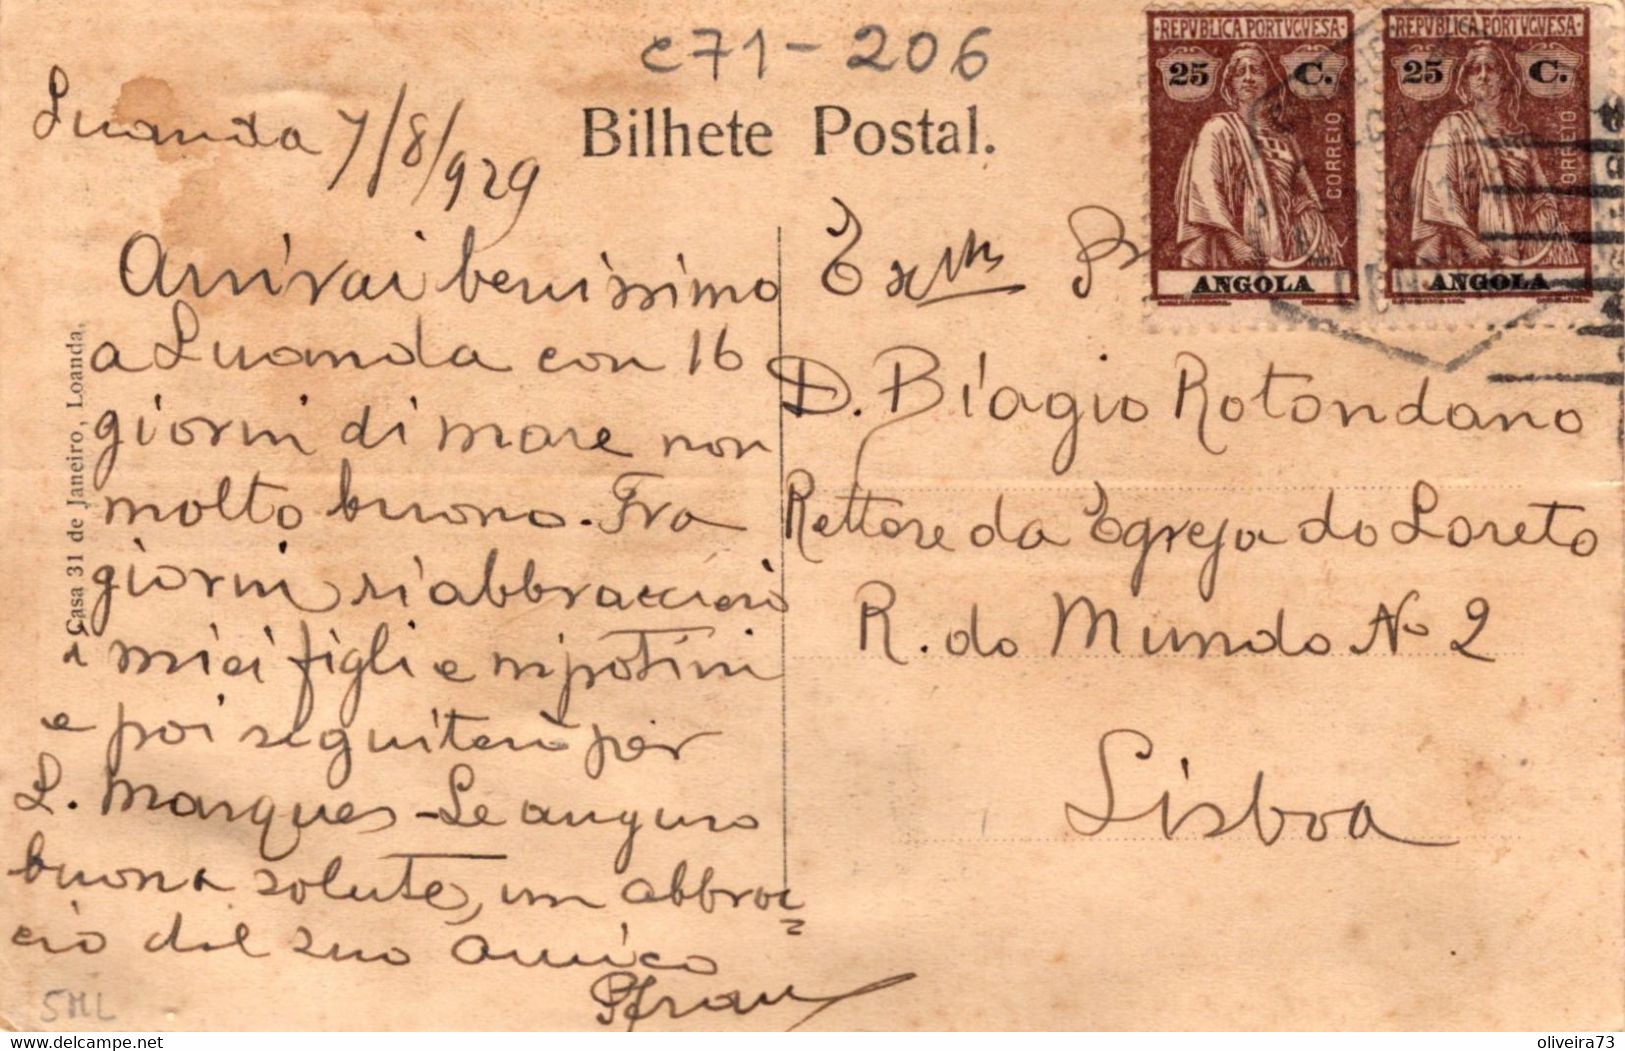 c71-206
Bilhete Postal.
REPVBLICA PORTVGVESA
25 C.
CORREIO
ANGOLA
REPVBLICA PORTVGVESA
25 C.
CORREIO
ANGOLA
Luanda 7/8/929
Arrivai benissimo
a Luanda con 16
giorni di mare non
molto buono. Fra
giorni riabbraccierò
i miei figli e nipotini
e poi seguiterò per
L. Marques - Le auguro
buona salute, un abbrac=
cio dal suo amico
Exmo Sr
D. Biagio Rotondano
Rettore da Egreja do Loreto
R. do Mundo No 2
Lisboa
Casa 31 de Janeiro, Loanda.
5ML
www.delcampe.net
oliveira73